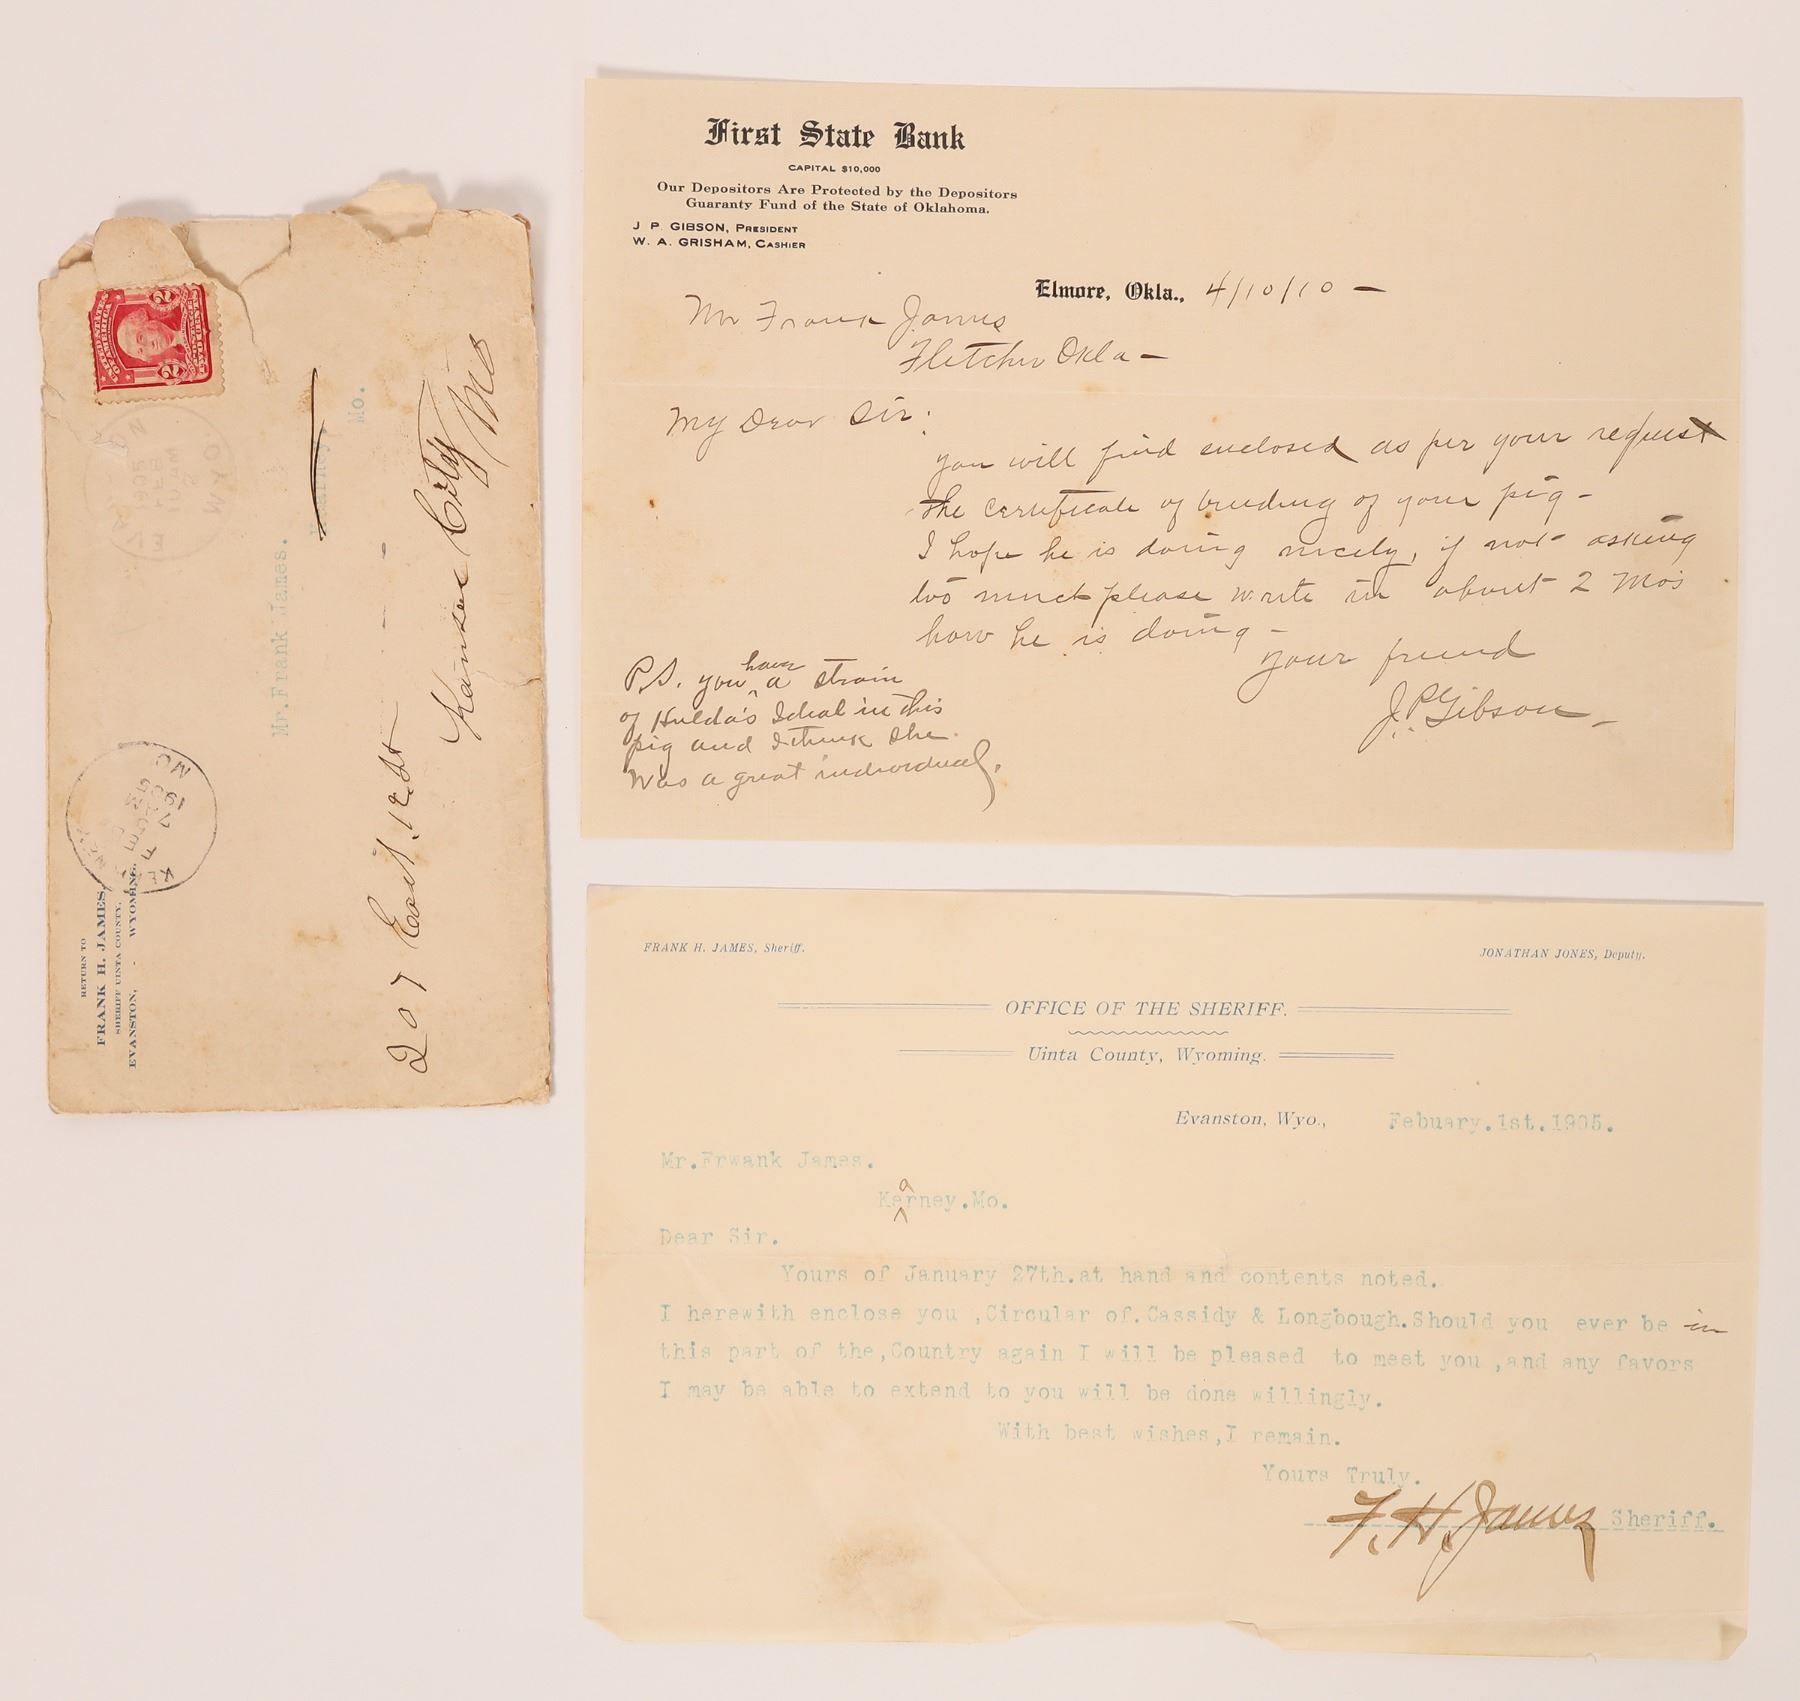 UNITED STATES OF AMERICA
POSTAGE
TWO CENTS
2 2
EVANSTON
FEB
1905
WYO.
Mr.Frank James.
Mo.
207 East. 12 St
Kansas City Mo
FEB
1905
MO.
RETURN TO
FRANK H. JAMES,
SHERIFF UINTA COUNTY,
EVANSTON, - WYOMING.
First State Bank
CAPITAL $10,000
Our Depositors Are Protected by the Depositors
Guaranty Fund of the State of Oklahoma.
J P GIBSON, PRESIDENT
W. A. GRISHAM, CASHIER
Elmore, Okla., 4/10/10 —
Mr Frank James
Fletcher Okla —
My Dear Sir:
you will find enclosed as per your request
the certificate of breeding of your pig -
I hope he is doing nicely, if not asking
too much please write in about 2 Mo's
how he is doing -
your friend
J. P. Gibson -
P.S. you have a strain
of Hulda's Ideal in this
pig and I think she
was a great individual.
FRANK H. JAMES, Sheriff.
JONATHAN JONES, Deputy.
OFFICE OF THE SHERIFF.
Uinta County, Wyoming.
Evanston, Wyo., Febuary.1st.1905.
Mr.Frwank James.
Kearney.Mo.
Dear Sir.
Yours of January 27th.at hand and contents noted.
I herewith enclose you ,Circular of.Cassidy & Longbough.Should you ever be in
this part of the,Country again I will be pleased to meet you ,and any favors
I may be able to extend to you will be done willingly.
With best wishes,I remain.
Yours Truly.
F. H. James Sheriff.